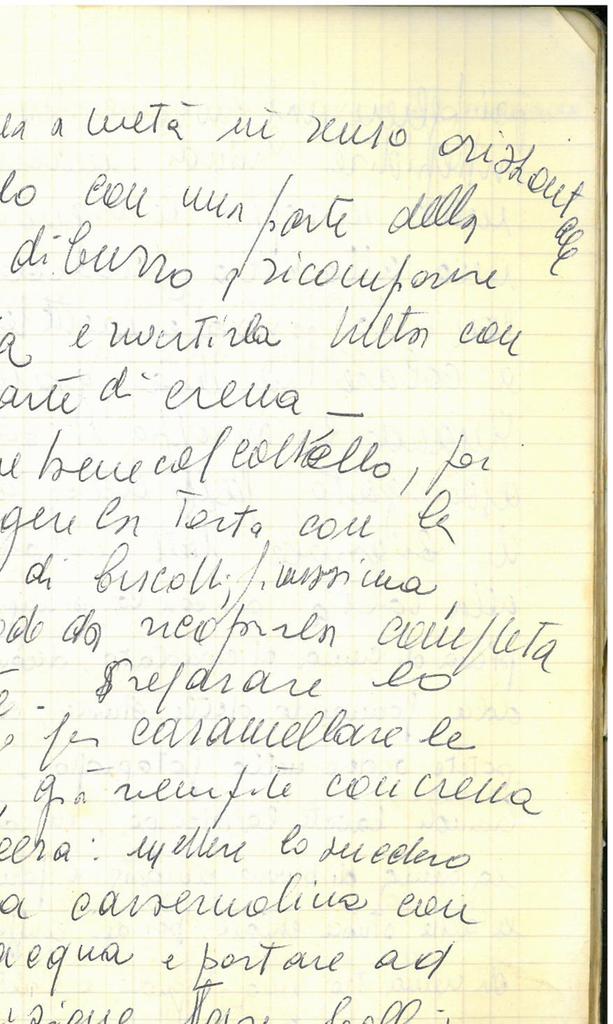 a metà in senso orizzontale
lo con una parte della
di burro, ricomporre
e rivestirla tutta con
arte di crema —
bene col coltello, poi
gere la torta con la
di biscotti finissima
odo da ricoprirla completa
te. Preparare lo
, per caramellare le
, già riempite con crema
era: mettere lo zucchero
a casseruolina con
acqua e portare ad